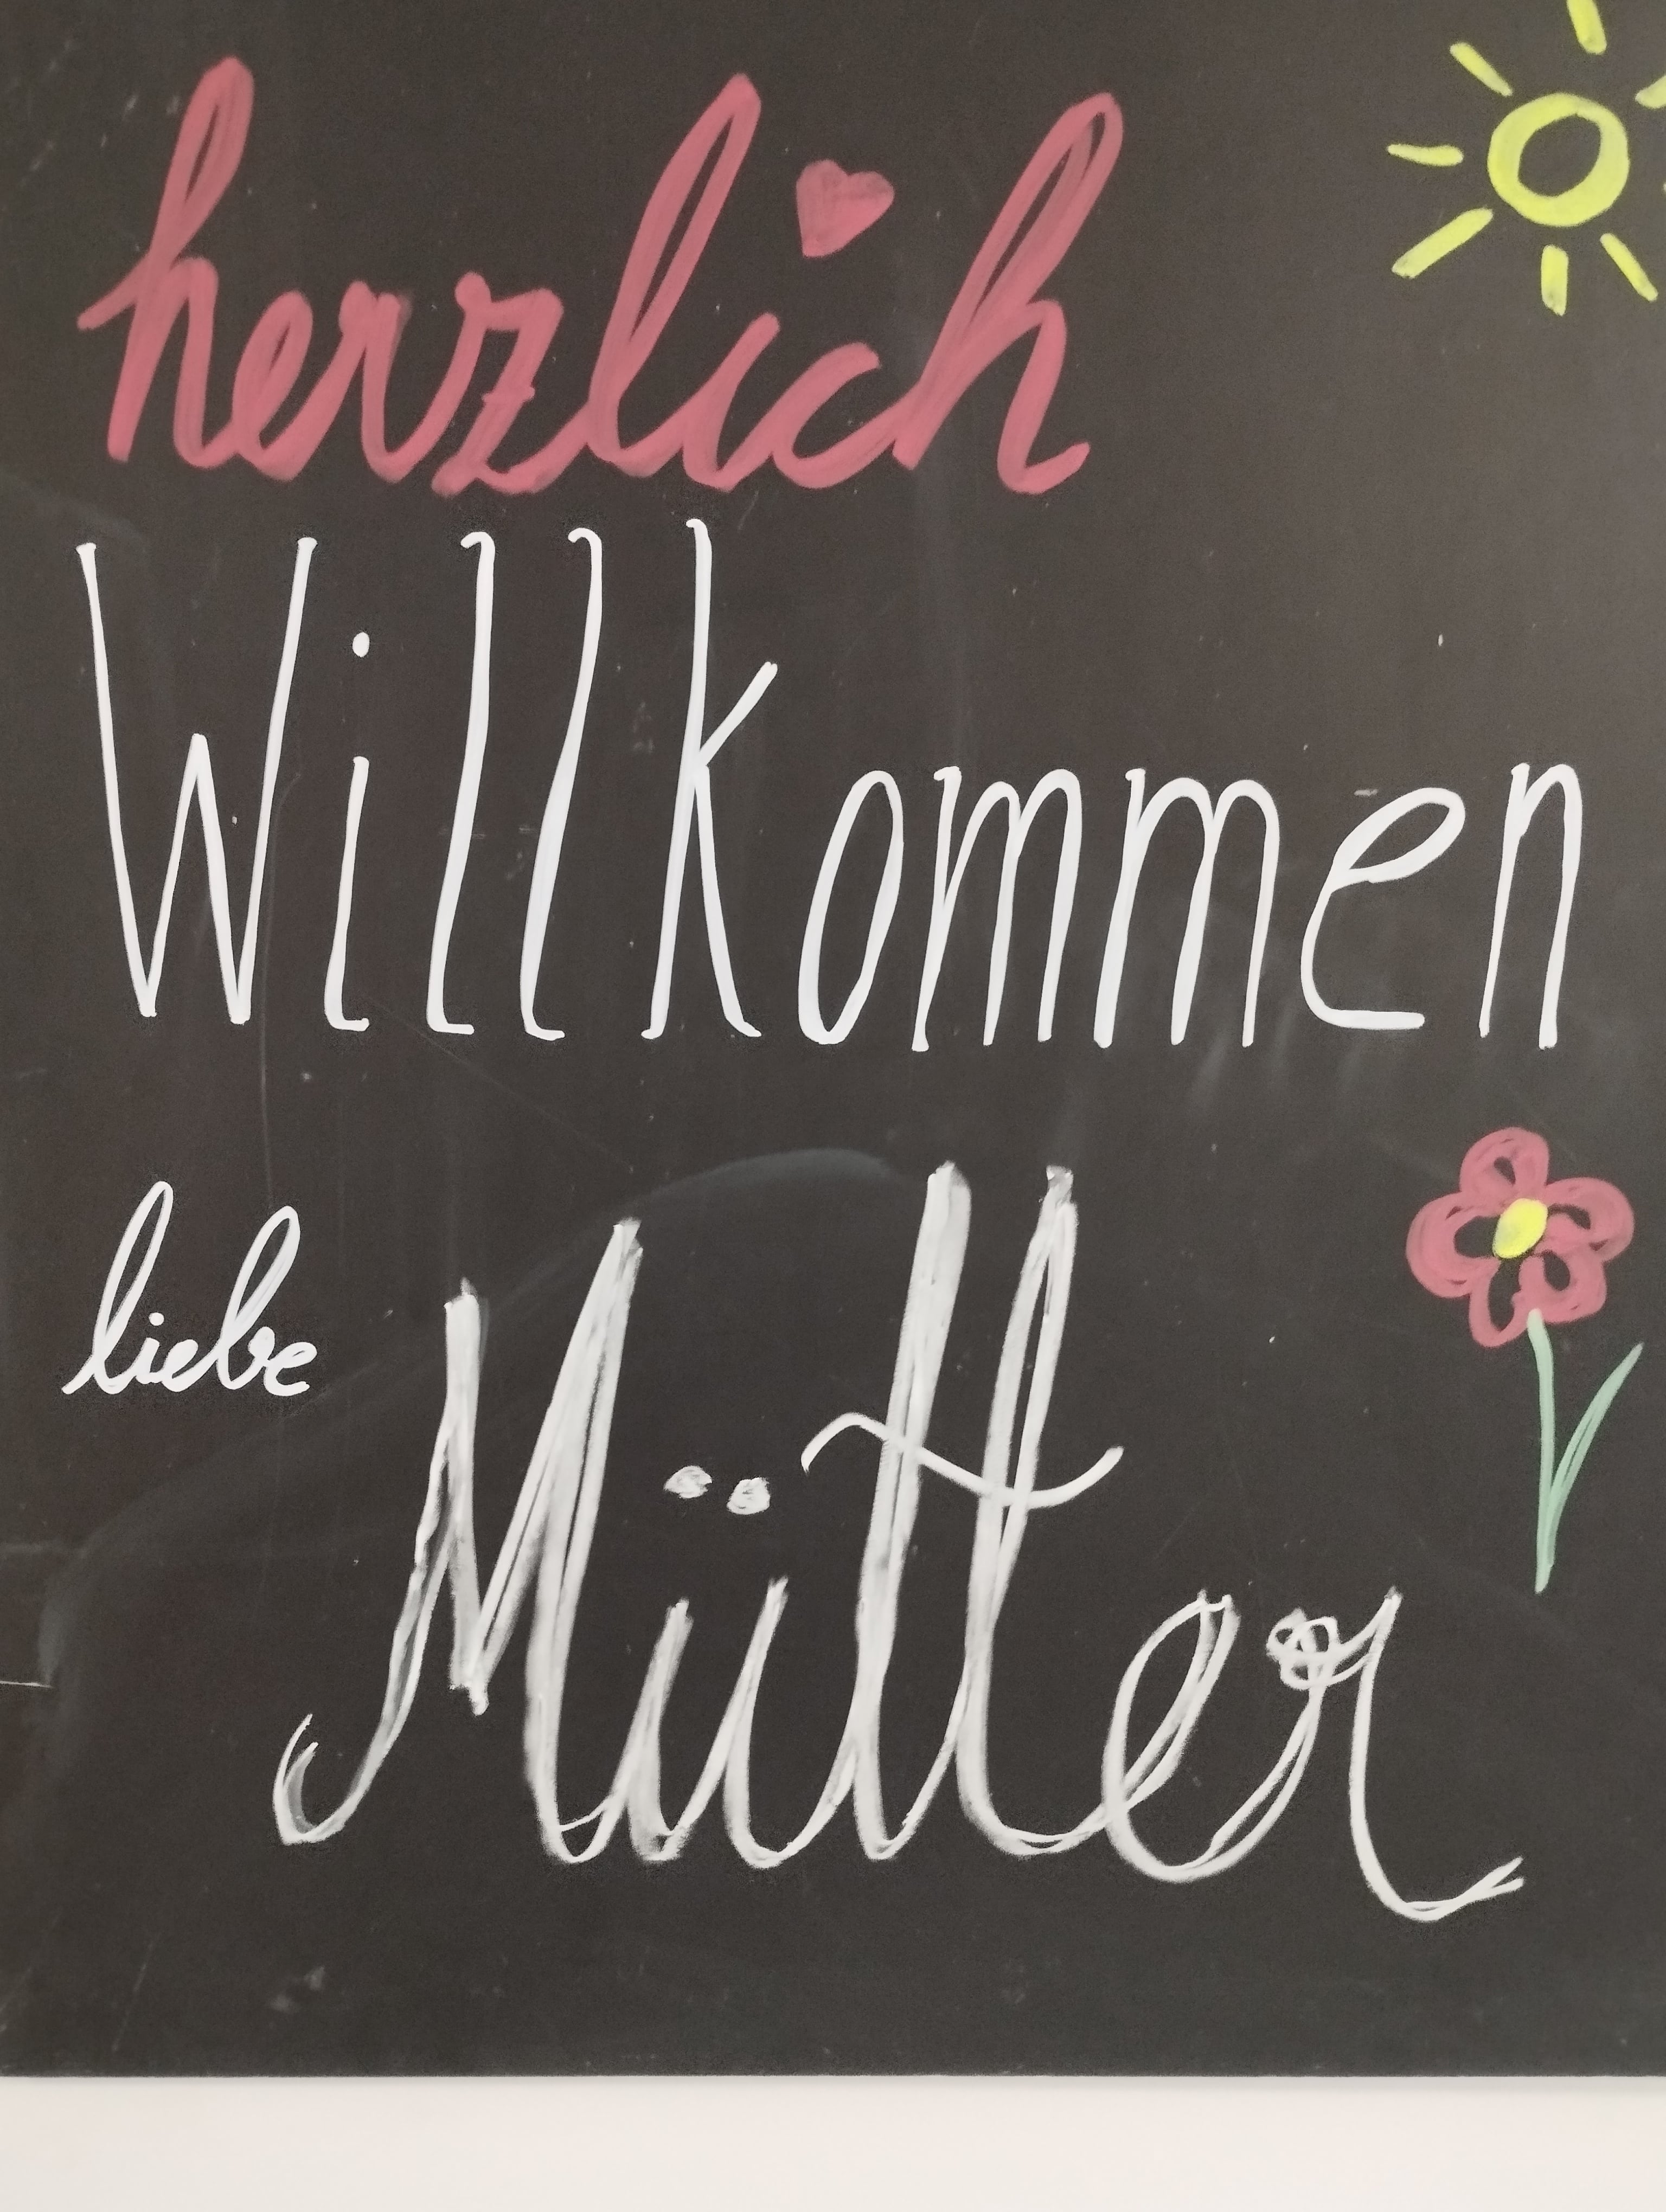 herzlich
Willkommen
liebe Mütter